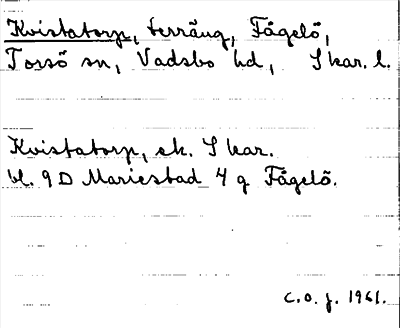 Kvistatorp, terräng, Fågelö,
Torsö sn, Vadsbo hd, Skar. l.
Kvistatorp, ek. Skar.
bl. 9D Mariestad 4 g Fågelö.
C.O.J. 1961.